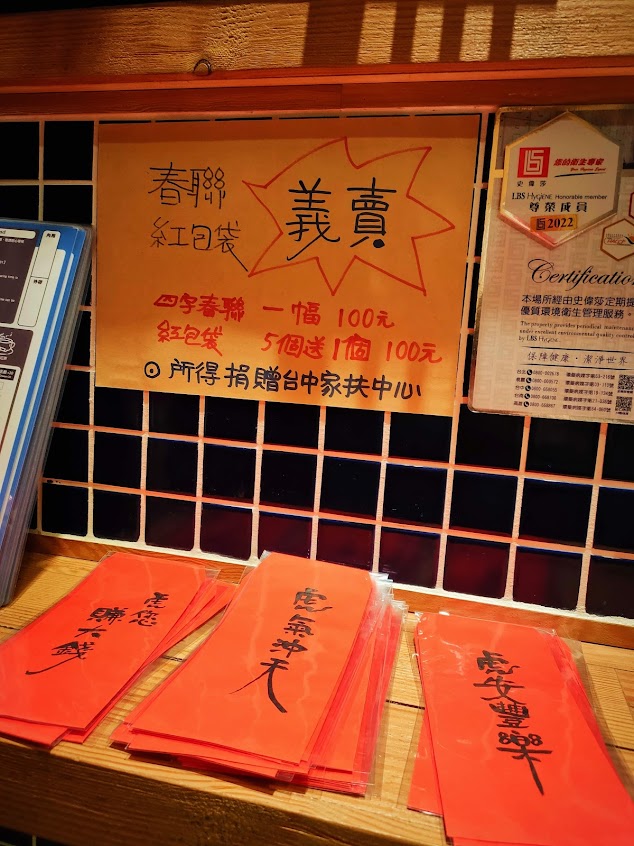 春聯
紅包袋
義賣
四字春聯 一幅 100元
紅包袋 5個送1個 100元
⊙所得捐贈台中家扶中心
史偉莎
您的衛生專家
Your Hygiene Expert
LBS HYGIENE Honorable member
尊榮成員
2022
Certification
本場所經由史偉莎定期提
優質環境衛生管理服務。
The property provides periodical maintenance
under excellent environmental quality control
by LBS HYGIENE.
保障健康·潔淨世界
虎您
賺大錢
虎氣沖天
虎安豐樂